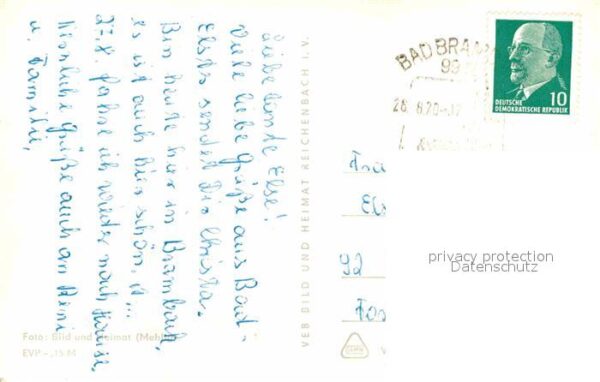 Liebe Tante Else!
Viele liebe Grüße aus Bad-
Elster sendet Dir Christa.
Bin heute hier in Brambach,
es ist auch hier schön,
27.8. fahre ich wieder nach Hause,
Herzliche Grüße auch an
u. Familie,
VEB BILD UND HEIMAT REICHENBACH I. V.
Foto: Bild und Heimat
EVP -,15 M
BAD BRAM
99
DEUTSCHE
DEMOKRATISCHE REPUBLIK
10
Frau
92
privacy protection
Datenschutz